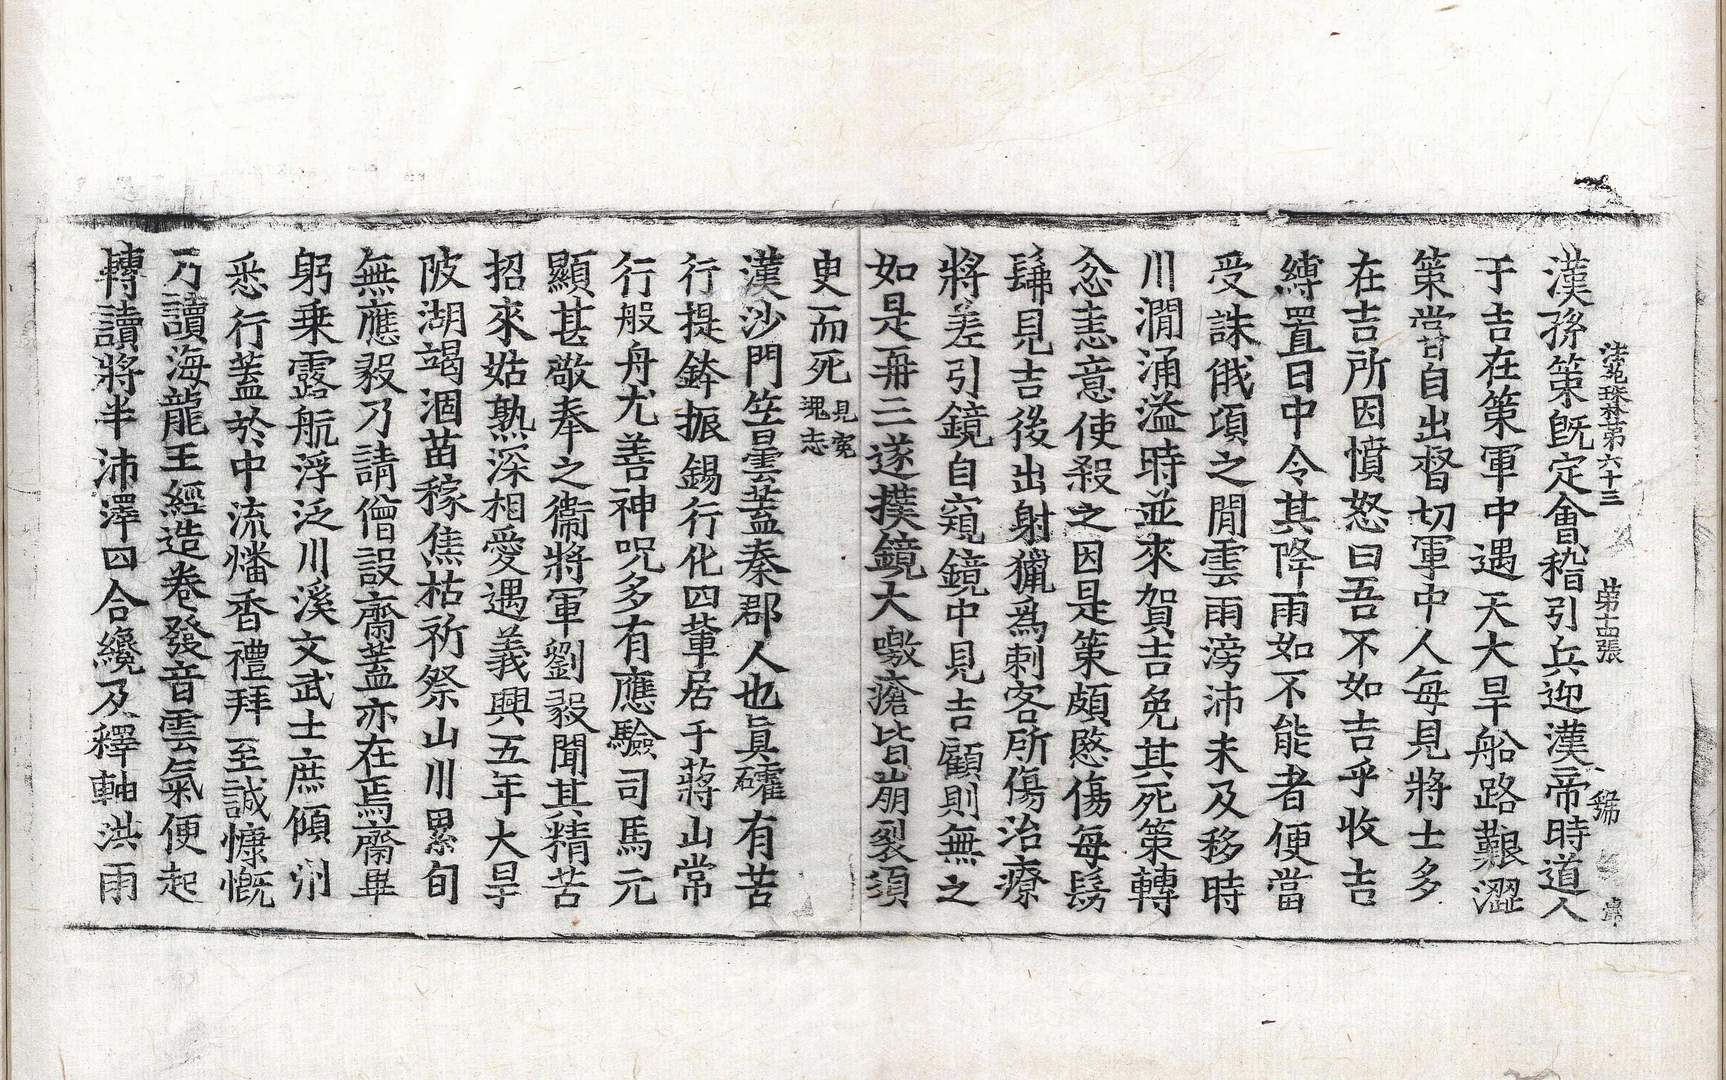 法苑珠林第六十三 第十四張 𭅺
漢孫策旣定會稽引兵迎漢帝時道人
于吉在策軍中遇天大旱船路艱澀
策嘗自出督切軍中人每見將士多
在吉所因憤怒曰吾不如吉乎收吉
縛置日中令其降雨如不能者便當
受誅俄頃之閒雲雨滂沛未及移時
川澗涌溢時並來賀吉免其死策轉
忿恚意使殺之因是策頗愍傷每髣
髴見吉後出射獵爲刺客所傷治療
將差引鏡自窺鏡中見吉顧則無之
如是再三遂撲鏡大噭瘡皆崩裂須
臾而死見寃
䰟志
漢沙門竺曇蓋秦郡人也眞確有苦
行提鉢振錫行化四輩居于蔣山常
行般舟尤善神呪多有應驗司馬元
顯甚敬奉之衞將軍劉毅聞其精苦
招來姑熟深相愛遇義興五年大旱
陂湖竭涸苗稼焦枯祈祭山川累旬
無應毅乃請僧設齋蓋亦在焉齋畢
躬乗露航浮泛川溪文武士庶傾州
悉行蓋於中流燔香禮拜至誠慷慨
乃讀海龍王經造卷發音雲氣便起
轉讀將半沛澤四合纔及釋軸洪雨